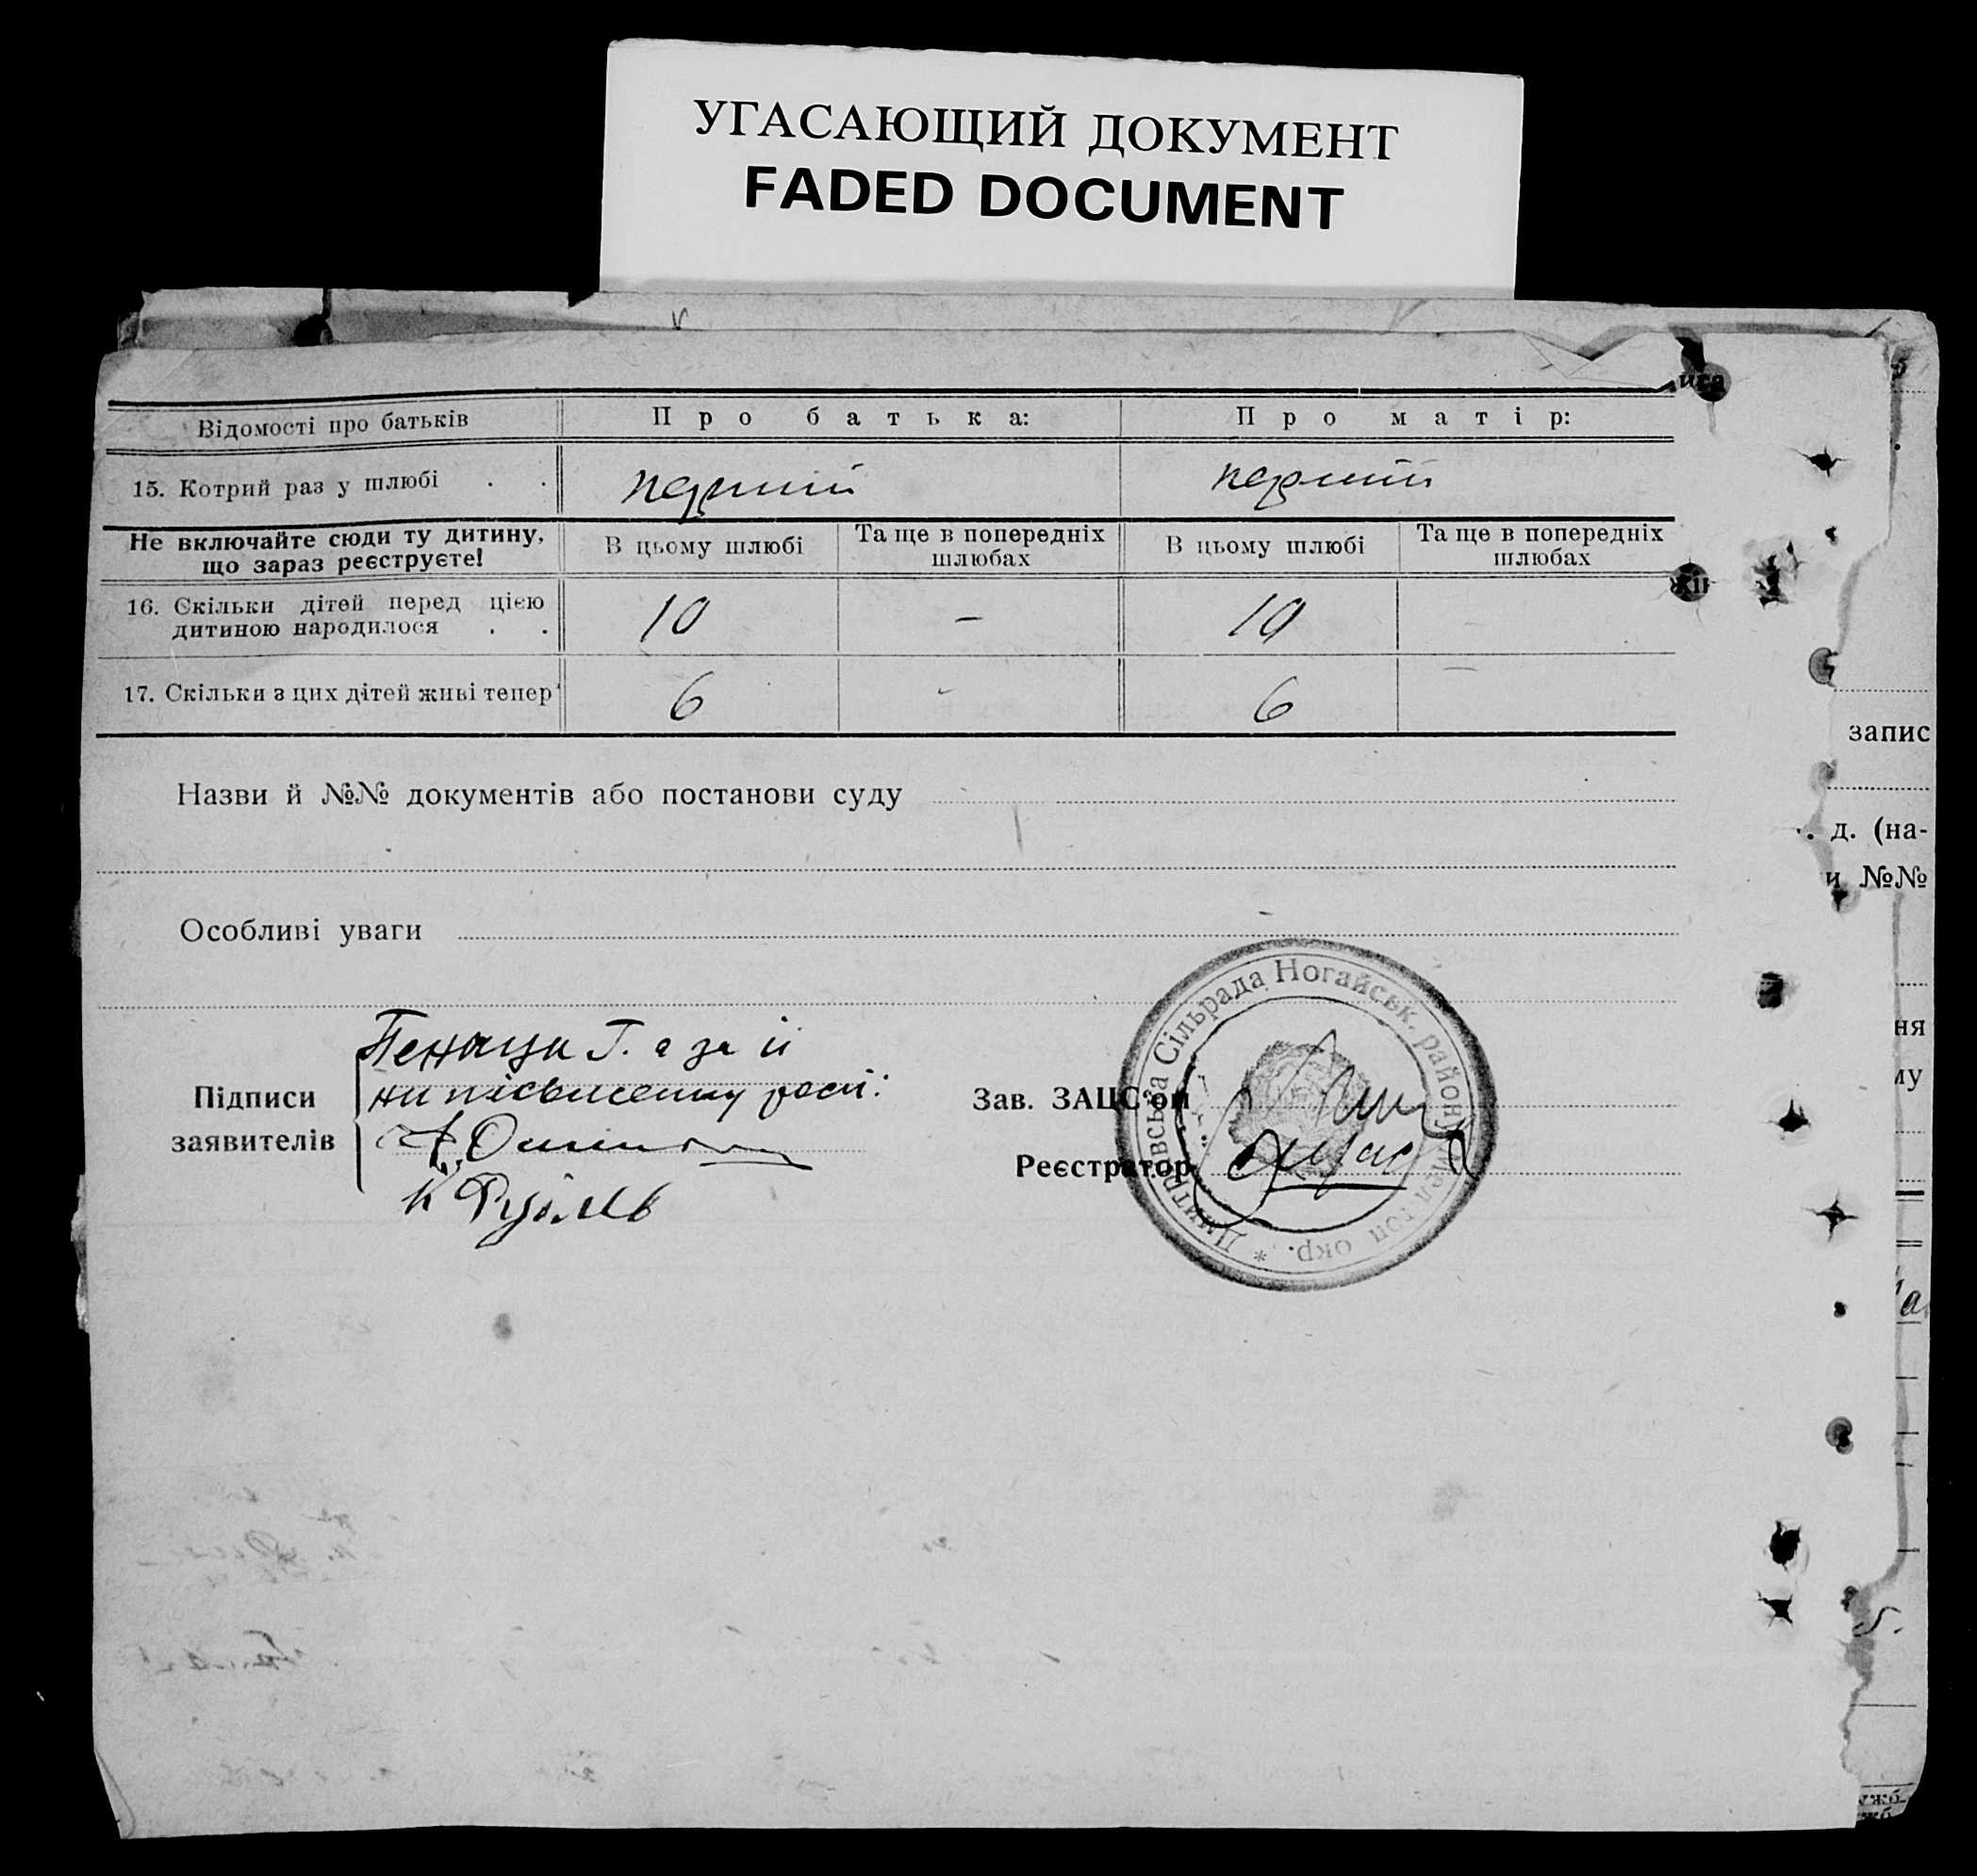 УГАСАЮЩИЙ ДОКУМЕНТ
FADED DOCUMENT
Відомості про батьків
Про батька:
Про матір:
15. Котрий раз у шлюбі . .
перший
перший
Не включайте сюди ту дитину,
що зараз реєструєте!
В цьому шлюбі
Та ще в попередніх
шлюбах
В цьому шлюбі
Та ще в попередніх
шлюбах
16. Скільки дітей перед цією
дитиною народилося . .
10
–
10
17. Скільки з цих дітей живі тепер
6
6
–
Назви й №№ документів або постанови суду
Особливі уваги
Підписи
заявителів
Г. а за її
Зав. ЗАЦС'ом
Реєстратор
Дмитрівська Сільрада Ногайськ. району Мелітоп окр. *
запис
д. (на-
и №№
ня
му